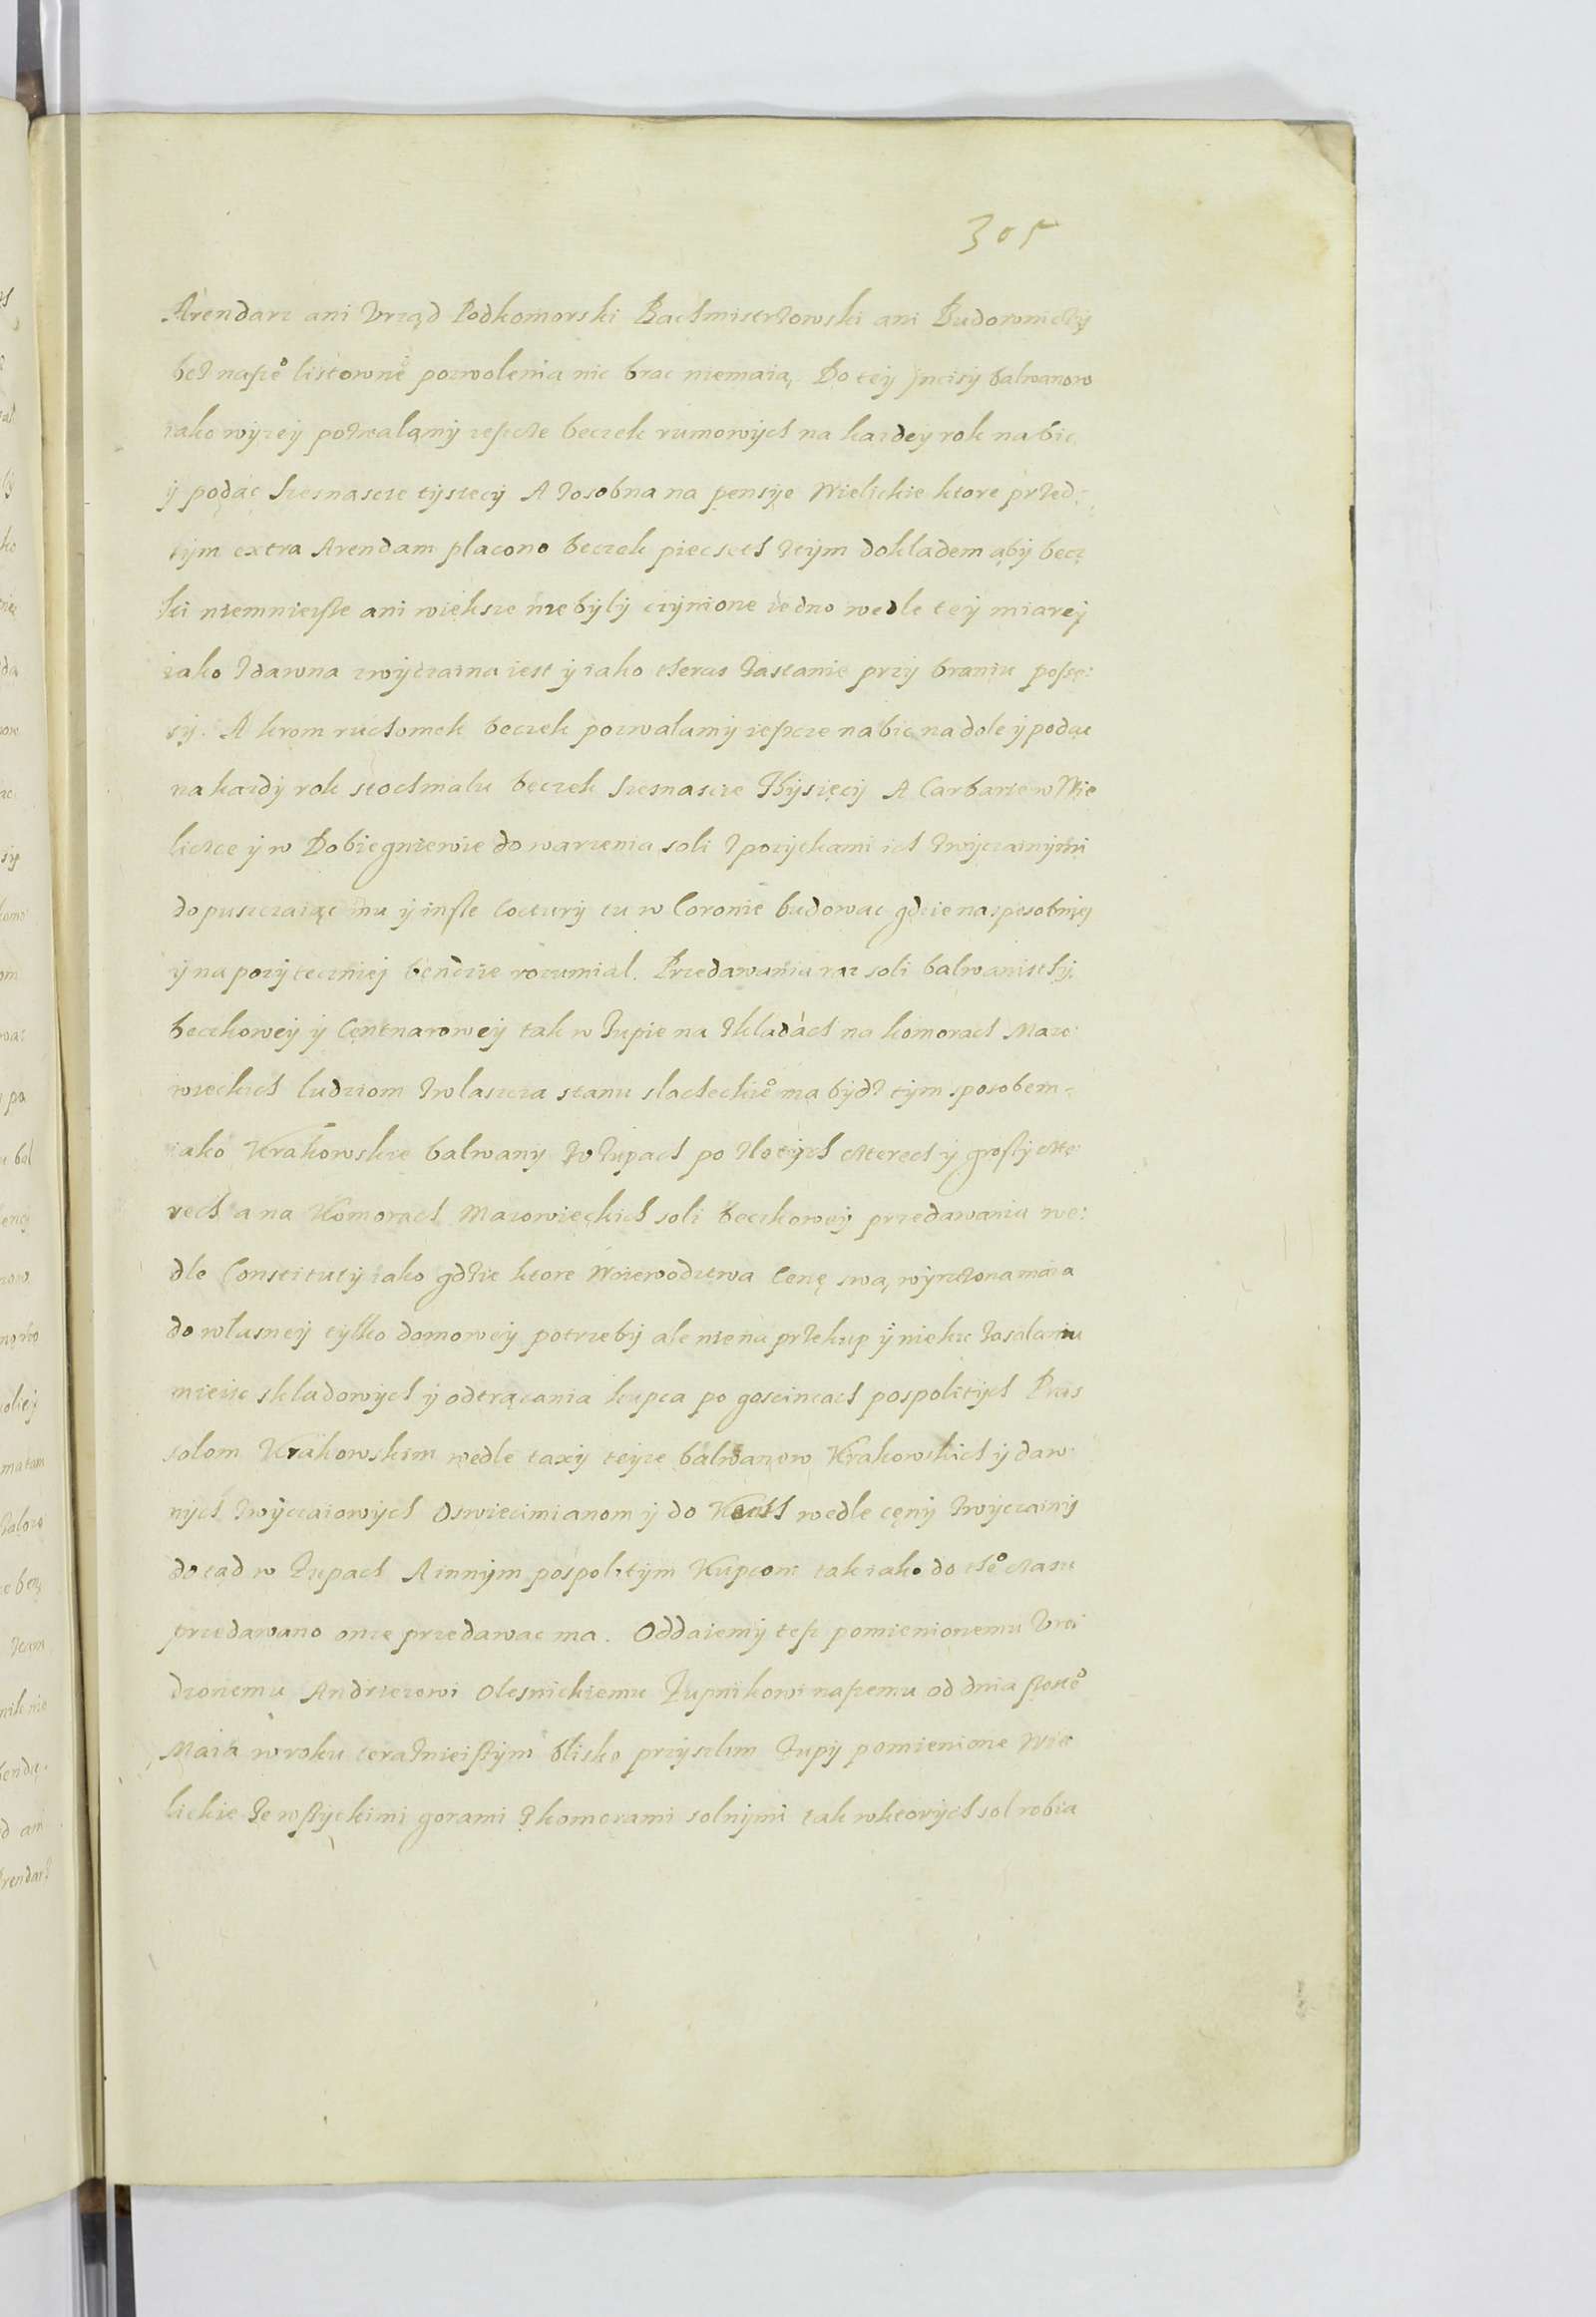 305
Arendarz ani Vrząd Podkomorski Bachmistrzowski ani Budowniczÿ
bez naſze° listowne° pozwolenia nic brac niemaią, Do teÿ Jncisÿ balwanow
iako wÿzeÿ pozwalamÿ ieſzcze beczek rumowÿch na kazdeÿ rok nabic
ÿ podac szesnascie tÿsiecÿ A zosobna na pensÿe Wielickie ktore przed:
tÿm extra Arendam placono beczek piecseth ztÿm dokladem abÿ becz
ki niemnieÿsze ani wieksze niebÿlÿ czÿnione iedno wedle teÿ miareÿ
iako zdawna zwÿczaina iest ÿ iako theras zastanie przÿ braniu poſse:
sÿ. A krom ruchomek beczek pozwalamÿ ieſzcze nabic na dole ÿ podac
na kazdÿ rok stochmalu beczek szesnascie Thÿsięcÿ A Carbarie w Wie
liczce ÿ w Dobiegniewie do warzenia soli z pozÿtkami ich zwÿczainÿmi
dopuszczaiąc mu ÿ insze Cocturÿ tu w Coronie budowac gdzie naspesobnieÿ
ÿ na pozÿtecznieÿ bendzie rozumial. Przedawania zaz soli balwanisthÿ
beczkoweÿ ÿ Centnaroweÿ tak w Zupie na Skladách na komorach Mazo
wieckich ludziom zwlaszcza stanu slacheckie° ma bÿdz tÿm sposobem
iako Krakowskie balwanÿ w Zupach po zlotÿch czterech ÿ groszÿ czte
rech a na Komorach Mazowieckich soli beczkoweÿ przedawania we:
dle Constitutÿ iako gdzie ktore Woiewodztwa Cenę swą, wÿrzczona maia
do wlasneÿ tÿlko domoweÿ potrzebÿ ale nie na przekup ÿ nieku zasalaniu
mieisc skladowÿch ÿ odtrącania kupca po goscincach pospolitÿch Pras
solom Krakowskim wedle taxÿ teÿze balwanow Krakowskich ÿ daw
nÿch zwÿczaiowÿch Oswiecimianom ÿ do wedle cenÿ zwÿczainÿ
dotad w Zupach A innÿm pospolitÿm Kupcom tak iako do the° czasu
przedawano onze przedawac ma. Oddaiemÿ teſz pomienionemu Vro
dzonemu Andrzeiowi Olesnickiemu Zupnikowi naſzemu od dnia ſzoste°
Maia w roku teraznieiſzÿm blisko przÿszlim Zupÿ pomienione Wie
lickie ze wſzÿtkimi gorami z komorami solnÿmi tak wktorÿch sol robia